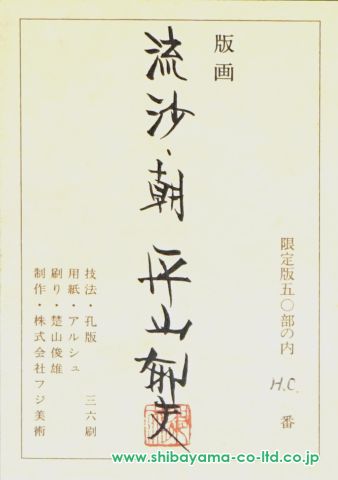 版画
限定版五〇部の内 H.C. 番
流沙・朝 平山郁夫
技法・孔版 三六刷
用紙・アルシュ
刷り・楚山俊雄
制作・株式会社フジ美術
www.shibayama-co-ltd.co.jp